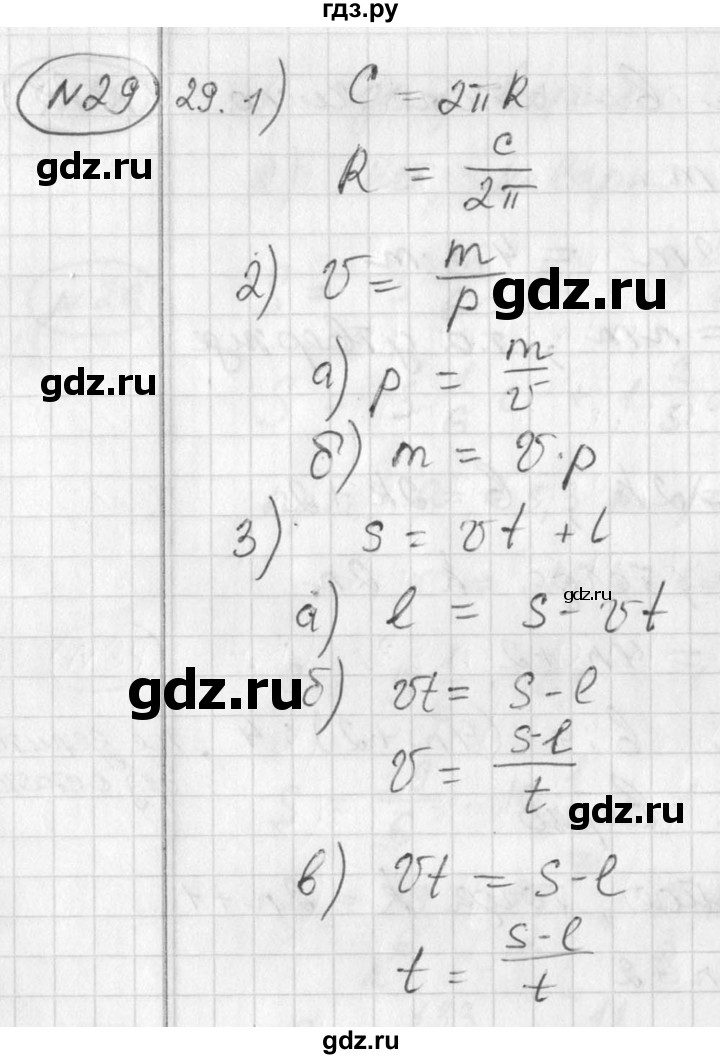 гдз.ру
№29 29.1) C = 2πR
R = c/2π
gdz.ru
2) v = m/p
gdz.ru
а) p = m/v
gdz.ru
б) m = v·p
3) s = vt + l
gdz.ru
а) l = s - vt
gdz.ru
б) vt = s - l
v = s-l/t
gdz.ru
в) vt = s - l
t = s-l/t
gdz.ru